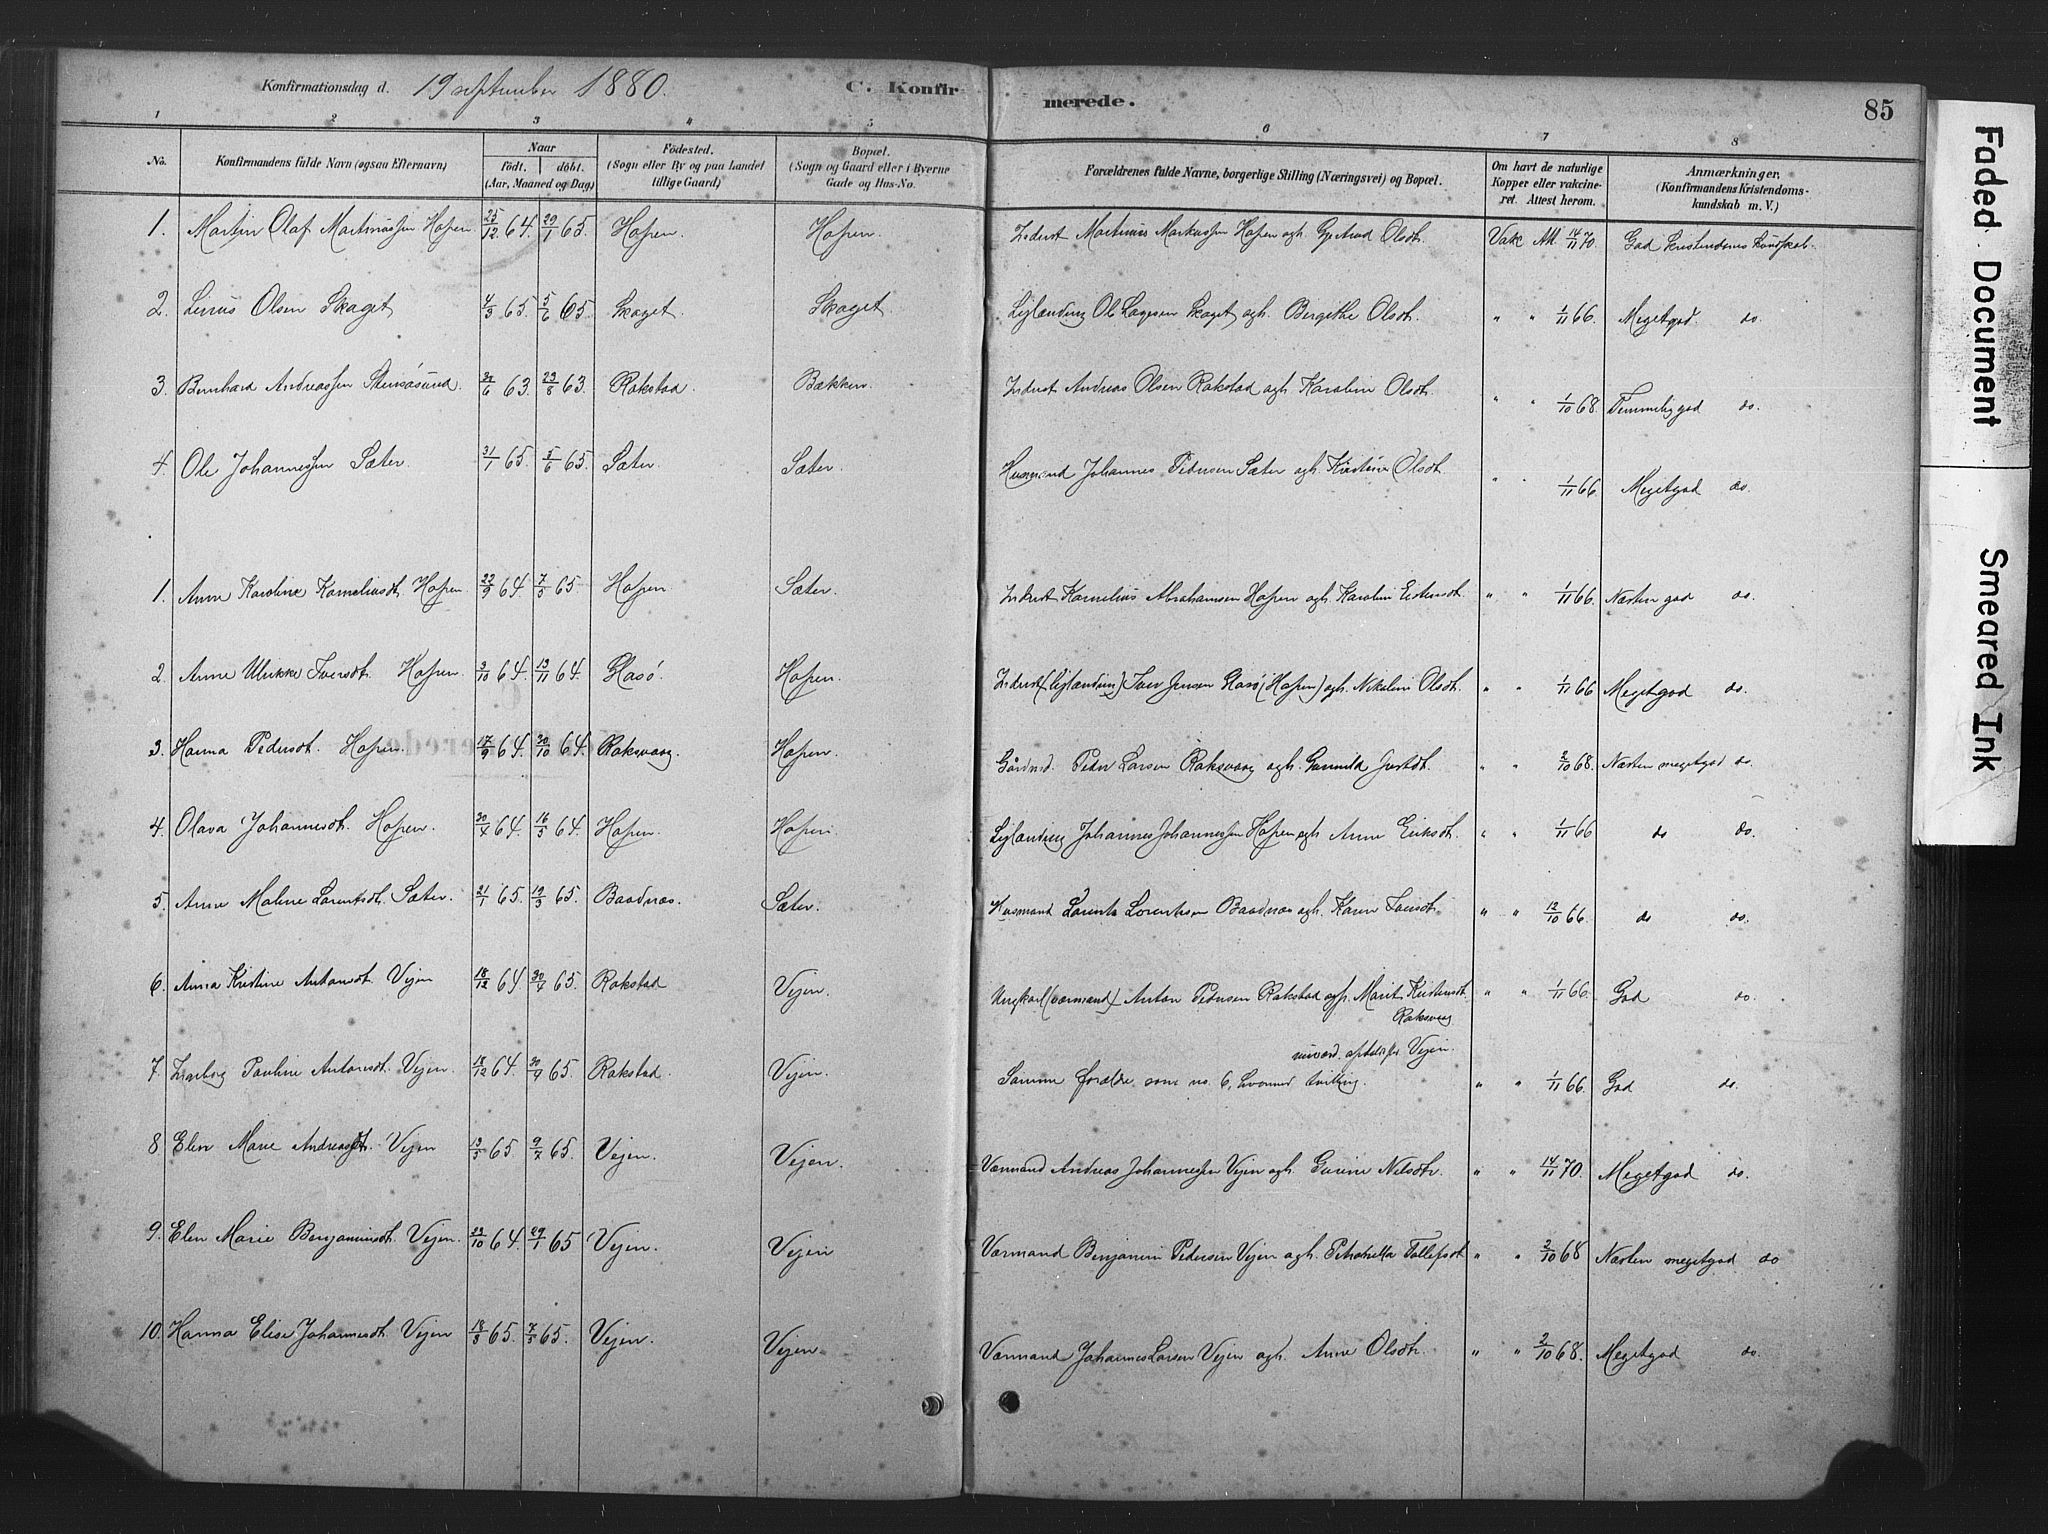 Konfirmationsdag d. 19 september 1880. C. Konfirmerede. 85
1 2 3 4 5 6 7 8
No. Konfirmandens fulde Navn (ogsaa Efternavn) Naar Födt. döbt. (Aar, Maaned og Dag) Födested. (Sogn eller By og paa Landet tillige Gaard) Bopæl. (Sogn og Gaard eller i Byerne Gade og Hus-No. Forældrenes fulde Navne, borgerlige Stilling (Næringsvei) og Bopæl. Om havt de naturlige Kopper eller vakcineret. Attest herom. Anmærkninger. (Konfirmandens Kristendomskundskab m. V.)
1. Martin Olaf Martinussen Hopen 25/12 64. 20/1 65. Hopen. Hopen. Inderst Martinus Markussen Hopen ogh. Olsdtr. Vakc Att 14/11 70. God Kristendoms Kundskab.
2. Linus Olsen Skaget 4/3 65. 5/6 65. Skaget. Skaget. Lejlænding Ole Skaget ogh. Bergithe Olsdt. " " 1/11 66. Megetgod. do.
3. Bernhard Andreassen Stensøsund 63. 23/8 63. Rokstad Bækken. Inderst Andreas Olsen Rokstad ogh. Karoline Olsdt. " " 1/10 68. Temmelig god do.
4. Ole Johannessen Sæter. 31/1 65. 5/6 65. Sæter. Sæter. Husmand Johannes Pedersen Sæter ogh. Kirstine Olsdt. " " 1/11 66. Megetgod do.
1. Anne Karoline Korneliusdt. Hopen. 22/9 64. 7/5 65. Hopen Sæter. Inderst Kornelius Abrahamsen Hopen ogh. Karoline Eistensdt. " " 1/11 66. Næsten god do.
2. Anne Ulrikke Iversdt. Hopen. 3/10 64. 13/11 64. Glasö. Hopen. Inderst (Lejlænding) Iver Jensen Glasö (Hopen) ogh. Nikoline Olsdt. " " 1/11 66 Megetgod do.
3. Hanna Pedersdt. Hopen. 17/9 64. 30/10 64. Roksvaag. Hopen. Gårdmd. Peder Larsen Roksvaag ogh. Gunnild " " 2/10 68. Næsten megetgod do.
4. Olava Johannesdt. Hopen. 30/4 64. 16/5 64. Hopen. Hopen. Lejlænding Johannes Johannessen Hopen ogh Anne Eriksdt. " " 1/11 66 do do.
5. Anne Maline Lorentsdt. Sæter. 21/1 65. 19/3 65. Baadnæs. Sæter. Husmand Lorents Lorentsen Baadnæs ogh. Karen Iversdt. " " 12/10 66. do do.
6. Anna Kristine Antonsdt. Vejen 18/12 64 30/4 65. Rokstad Vejen. Ungkarl (værmand) Anton Pedersen Rokstad ogp. Marit Kristensdt. Roksvaag " " 1/11 66. God do.
7. Ingeborg Pauline Antonsdt. Vejen. 18/12 64. 30/4 65. Rokstad. Vejen. Samme forældre som no. 6, hvormed tvilling. " " 1/11 66. God do.
8. Elen Marie Andreasdt. Vejen 13/5 65. 9/7 65. Vejen. Vejen. Værmand Andreas Johannessen Vejen ogh. Gurine Nilsdtr. " " 14/11 70. Megetgod do.
9. Elen Marie Benjaminsdt. Vejen. 23/10 64. 29/1 65. Vejen. Vejen Værmand Benjamin Pedersen Vejen ogh. Petronella Tollefsdt " " 2/10 68 Næsten megetgod do
10. Hanna Elise Johannesdt. Vejen 18/3 65. 7/5 65. Vejen. Vejen. Værmand Johannes Larsen Vejen ogh. Anne Olsdtr. " " 2/10 68. Megetgod do.
Faded Document
Smeared Ink